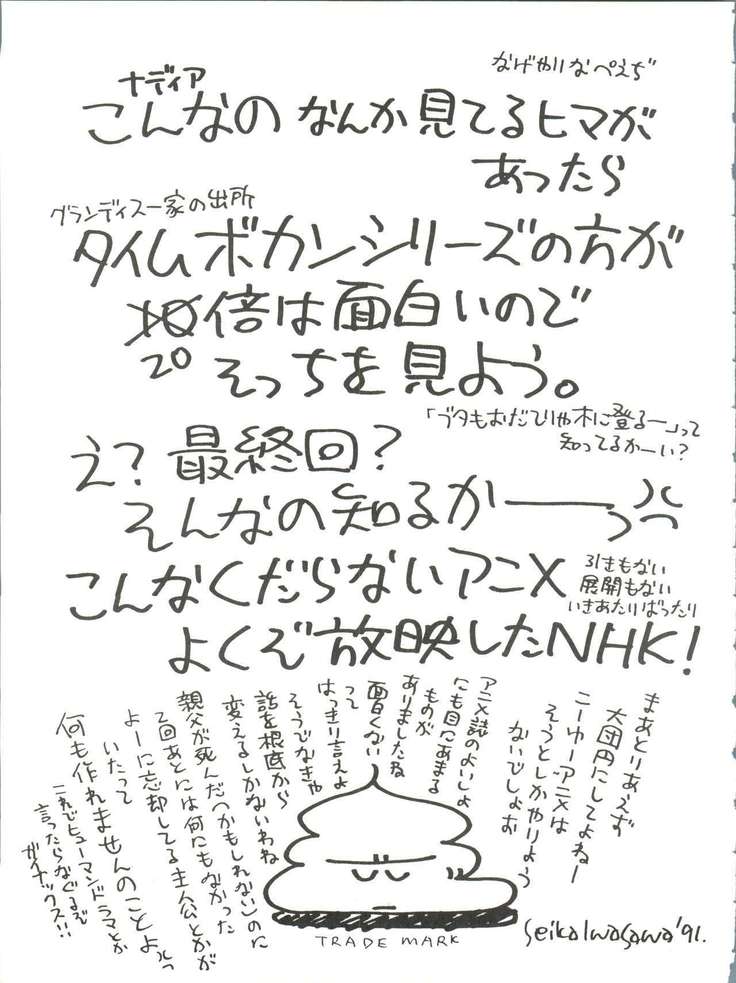 なげやりなぺえぢ
ナディア
こんなの なんか見てるヒマが
あったら
グランディス一家の出所
タイムボカンシリーズの方が
10倍は面白いので
20
そっちを見よう。
「ブタもおだてりゃ木に登るー」って
知ってるかーい?
え? 最終回?
そんなの知るかーーっ
こんなくだらないアニメ
引きもない
展開もない
いきあたりばったり
よくぞ放映したNHK!
まあとりあえず
大団円にしてよねー
こーゆーアニメは
そうとしかやりよう
ないでしょお
アニメ誌のよいしょ
にも目にあまる
ものが
ありましたね
面白くない
って
はっきり言えよ
そうでなきゃ
話を根底から
変えるしかないわね
親父が死んだ(かもしれない)のに
2回あとには何にもなかった
よーに忘却してる主人公とかが
いたって
何も作れませんのことよっ
これでヒューマンドラマとか
言ったらなぐるぞ
ガイナックス!!
TRADE MARK
Seika Iwasawa '91.